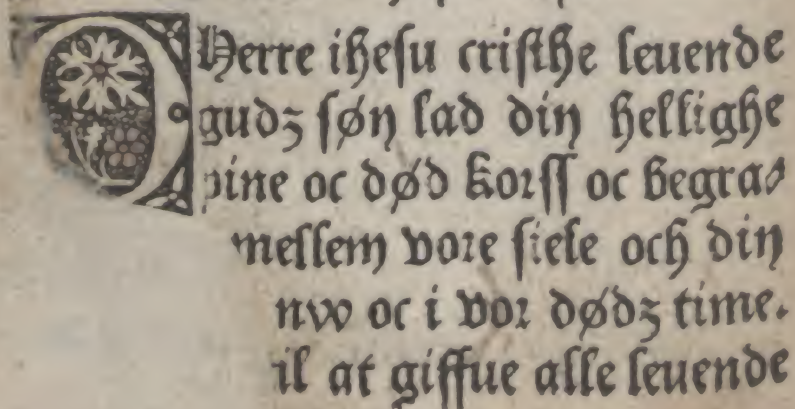 O Herre ihesu cristhe leuende
gudz søn lad din hellighe
pine oc død korss oc begra⸗
mellem vore siele och din
nw oc i vor dødz time.
il at giffue alle leuende